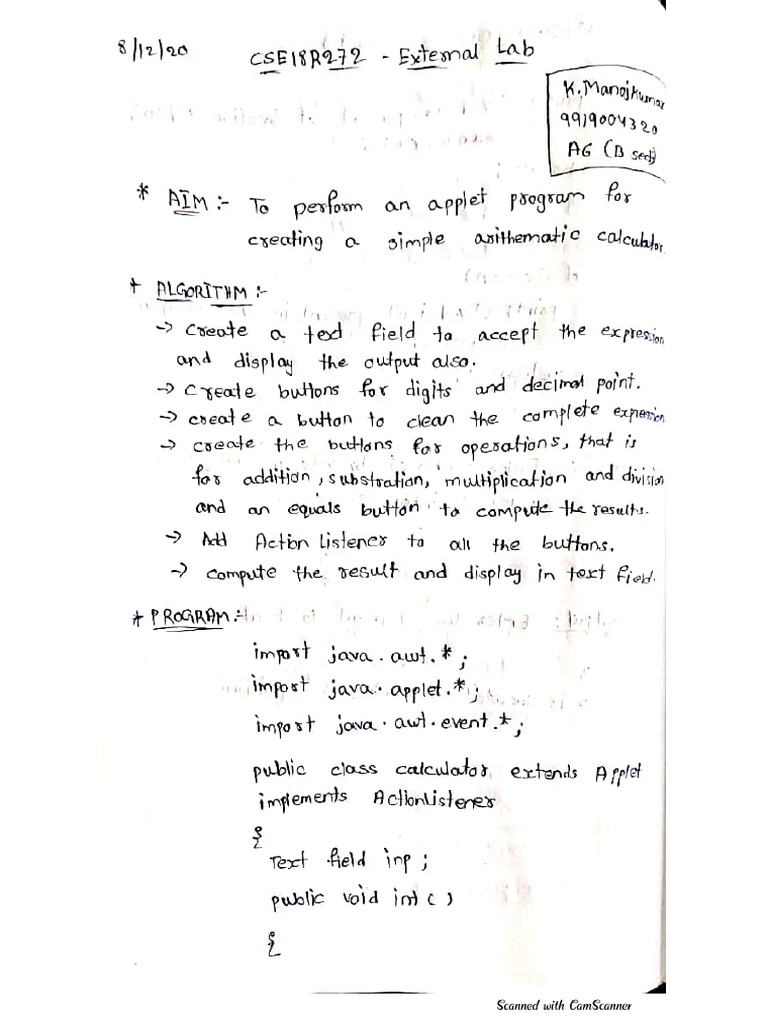 8/12/20
CSE18R272 - External Lab
K. Manojkumar
9919004320
A6 (B sec)
* AIM :- To perform an applet program for
creating a simple arithematic calculator.
* ALGORITHM :-
→ create a text field to accept the expression
and display the output also.
→ create buttons for digits and decimal point.
→ create a button to clean the complete expression
→ create the buttons for operations, that is
for addition, substration, multiplication and division
and an equals button to compute the results.
→ Add Action Listener to all the buttons.
→ compute the result and display in text field.
* PROGRAM :-
import java.awt.*;
import java.applet.*;
import java.awt.event.*;
public class calculator extends Applet
implements ActionListener
{
Text field inp;
public void int ()
{
Scanned with CamScanner